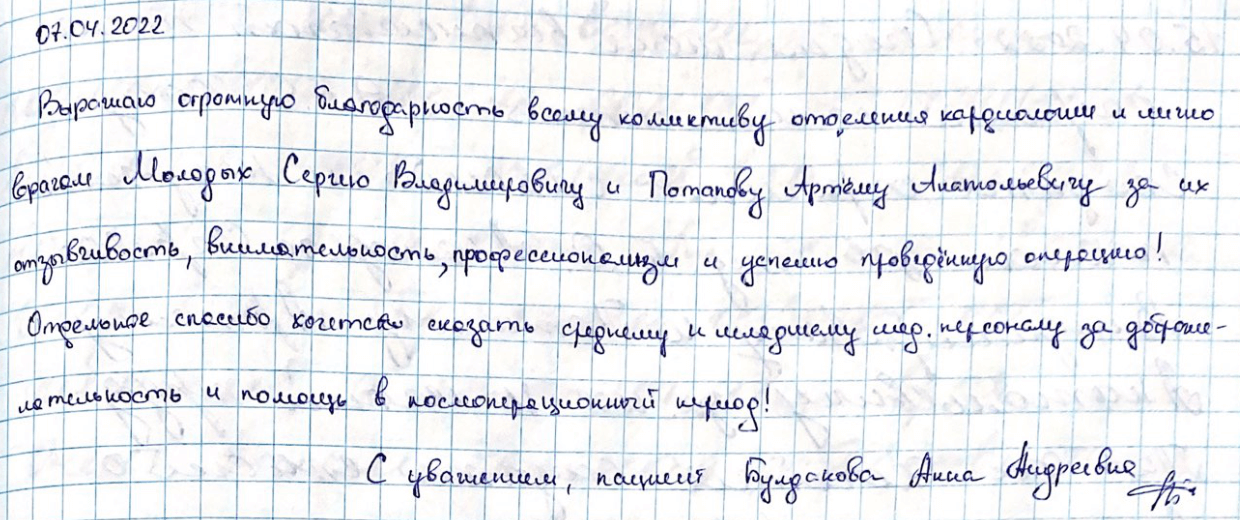 07.04.2022
Выражаю огромную благодарность всему коллективу отделения кардиологии и лично
врачам Молодых Сергею Владимировичу и Потапову Артёму Анатольевичу за их
отзывчивость, внимательность, профессионализм и успешно проведённую операцию!
Отдельное спасибо хочется сказать среднему и младшему мед. персоналу за доброже-
лательность и помощь в послеоперационный период!
С уважением, пациент Булдакова Анна Андреевна